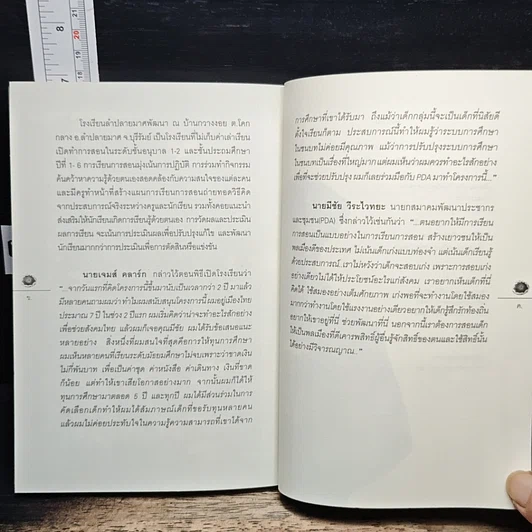 โรงเรียนลำปลายมาศพัฒนา ณ บ้านกวางงอย ต.โคก
กลาง อ.ลำปลายมาศ จ.บุรีรัมย์ เป็นโรงเรียนที่ไม่เก็บค่าเล่าเรียน
เปิดทำการสอนในระดับชั้นอนุบาล 1-2 และชั้นประถมศึกษา
ปีที่ 1- 6 การเรียนการสอนมุ่งเน้นการปฏิบัติ การร่วมทำกิจกรรม
ค้นคว้าหาความรู้ด้วยตนเองสอดคล้องกับความสนใจของแต่ละคน
และมีครูทำหน้าที่สร้างแผนการเรียนการสอนถ่ายทอดวิธีคิด
จากประสบการณ์จริงระหว่างครูและนักเรียน รวมทั้งคอยแนะนำ
ส่งเสริมให้นักเรียนเกิดการเรียนรู้ด้วยตนเอง การวัดผลและประเมิน
ผลการเรียน จะเป็นการประเมินผลเพื่อปรับปรุงแก้ไข และพัฒนา
นักเรียนมากกว่าการประเมินเพื่อการตัดสินหรือแข่งขัน
นายเจมส์ คลาร์ก กล่าวไว้ตอนพิธีเปิดโรงเรียนว่า
"...จากวันแรกที่คิดโครงการนี้ขึ้นมานับเป็นเวลากว่า 2 ปี มาแล้ว
มีหลายคนถามผมว่า ทำไมผมสนับสนุนโครงการนี้ ผมอยู่เมืองไทย
ประมาณ 7 ปี ในช่วง 2 ปีแรก ผมเริ่มคิดว่าน่าจะทำอะไรสักอย่าง
เพื่อช่วยสังคมไทย แล้วผมก็เจอคุณมีชัย ผมได้รับข้อเสนอแนะ
หลายอย่าง สิ่งหนึ่งที่ผมสนใจที่สุดคือการให้ทุนการศึกษา
ผมเห็นหลายคนที่เรียนระดับมัธยมศึกษาไม่จบเพราะว่าขาดเงิน
ไม่กี่พันบาท เพื่อเป็นค่าชุด ค่าหนังสือ ค่าเดินทาง เงินที่ขาด
ก็น้อย แต่ทำให้เขาเสียโอกาสอย่างมาก จากนั้นผมก็ได้ให้
ทุนการศึกษามาตลอด 5 ปี และทุกปี ผมได้มีส่วนร่วมในการ
คัดเลือกเด็กทำให้ผมได้สัมภาษณ์เด็กที่ขอรับทุนหลายคน
แล้วผมไม่ค่อยประทับใจในความรู้ความสามารถที่เขาได้จาก
การศึกษาที่เขาได้รับมา ถึงแม้ว่าเด็กกลุ่มนี้จะเป็นเด็กที่นิสัยดี
ตั้งใจเรียนก็ตาม ประสบการณ์นี้ทำให้ผมรู้ว่าระบบการศึกษา
ในชนบทไม่ค่อยมีคุณภาพ แม้ว่าการปรับปรุงระบบการศึกษา
ในชนบทเป็นเรื่องที่ใหญ่มาก แต่ผมเห็นว่าผมควรทำอะไรสักอย่าง
เพื่อที่จะช่วยปรับปรุง ผมก็เลยร่วมมือกับ PDA มาทำโครงการนี้..."
นายมีชัย วีระไวทยะ นายกสมาคมพัฒนาประชากร
และชุมชน(PDA) ซึ่งกล่าวไว้เช่นกันว่า "...ตนอยากให้มีการเรียน
การสอนเป็นแบบอย่างในการเรียนการสอน สร้างเยาวชนให้เป็น
พลเมืองดีของประเทศ ไม่เน้นเด็กเก่งแบบท่องจำ แต่เน้นเด็กเรียนรู้
ด้วยประสบการณ์...เราไม่หวังว่าเด็กจะสอบเก่ง เพราะการสอบเก่ง
อย่างเดียวไม่ได้ให้ประโยชน์อะไรแก่สังคม เราอยากเห็นเด็กที่มี
คิดได้ ใช้สมองอย่างเต็มศักยภาพ เก่งพอที่จะทำงานโดยใช้สมอง
มากกว่าทำงานโดยใช้แรงงานอย่างเดียวอยากให้เด็กรู้สึกรักท้องถิ่น
อยากให้อยู่ที่นี่ ช่วยพัฒนาที่นี่ นอกจากนี้เราต้องการสอนเด็ก
ให้เป็นพลเมืองที่ดีเคารพสิทธิ์ผู้อื่นรู้จักสิทธิ์ของตนและใช้สิทธิ์นั้น
ได้อย่างมีวิจารณญาณ.."
8
7
20
21